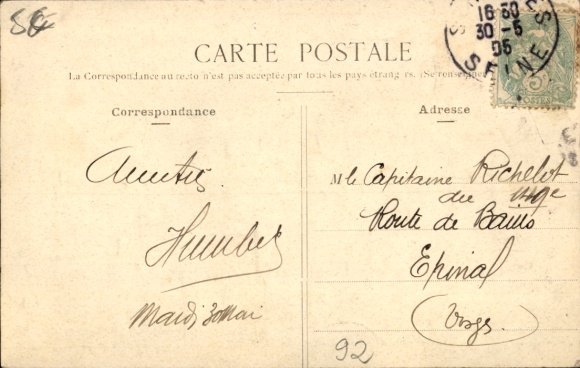 CARTE POSTALE
La Correspondance au recto n'est pas acceptée par tous les pays étrangers. (Se renseigner
Correspondance
Adresse
Amitiés
Humbert
Mardi 30 Mai
M le Capitaine Richelot
du
Route de Bains
Epinal
Vosges
92
16 30
30 -5
05
SEINE
POSTES